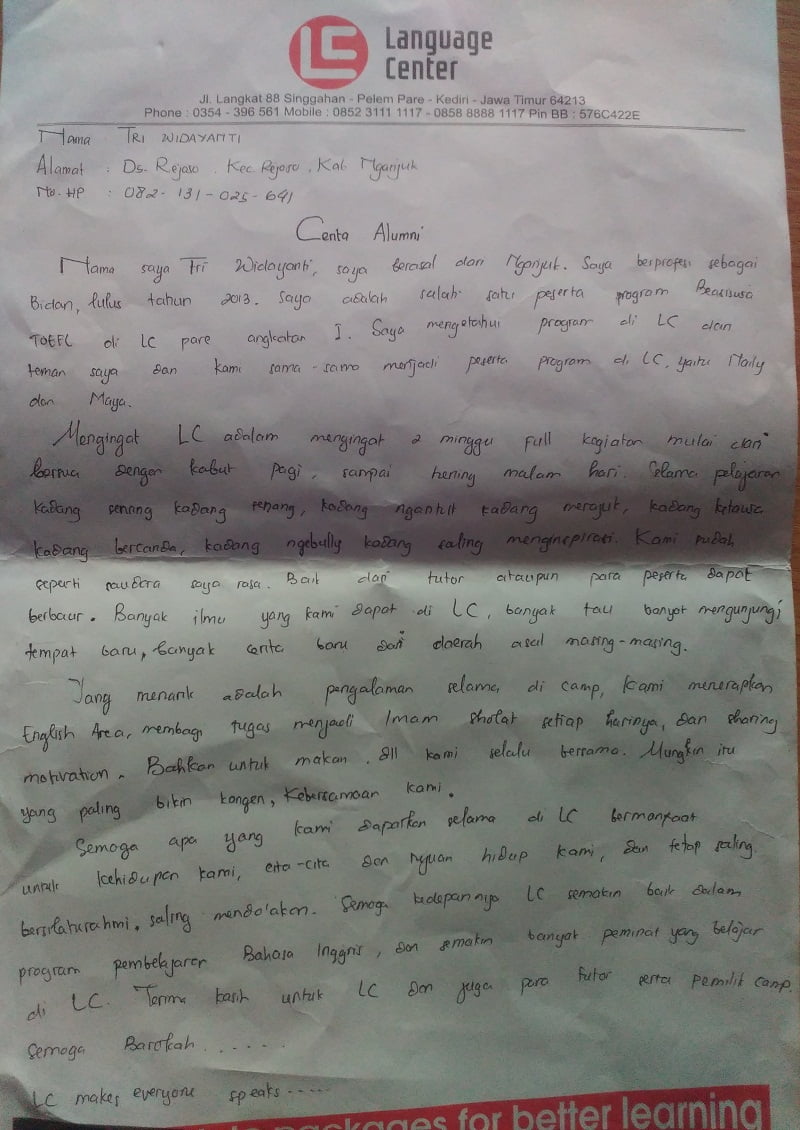 LC Language
Center
Jl. Langkat 88 Singgahan - Pelem Pare - Kediri - Jawa Timur 64213
Phone : 0354 - 396 561 Mobile : 0852 3111 1117 - 0858 8888 1117 Pin BB : 576C422E
Nama : TRI WIDAYANTI
Alamat : Ds. Rejoso . Kec. Rejoso , Kab Nganjuk
No. HP : 082 - 131 - 025 - 641
Cerita Alumni
Nama saya Tri Widayanti, saya berasal dari Nganjuk. Saya berprofesi sebagai
Bidan, lulus tahun 2013. Saya adalah salah satu peserta program Beasiswa
TOEFL di LC pare angkatan I. Saya mengetahui program di LC dari
teman saya dan kami sama-sama menjadi peserta program di LC, yaitu Naily
dan Maya.
Mengingat LC adalah mengingat 2 minggu full kegiatan mulai dari
bersua dengan kabut pagi, sampai hening malam hari. Selama pelajaran
kadang senang kadang tenang, kadang ngantuk kadang merajuk, kadang ketawa
kadang bercanda, kadang ngebully kadang saling menginspirasi. Kami sudah
seperti saudara saya rasa. Baik dari tutor ataupun para peserta dapat
berbaur. Banyak ilmu yang kami dapat di LC, banyak tau banyak mengunjungi
tempat baru, banyak cerita baru dari daerah asal masing-masing.
Yang menarik adalah pengalaman selama di camp, kami menerapkan
English Area, membagi tugas menjadi Imam sholat setiap harinya, dan sharing
motivation. Bahkan untuk makan. dll kami selalu bersama. Mungkin itu
yang paling bikin kangen, Kebersamaan kami.
Semoga apa yang kami dapatkan selama di LC bermanfaat
untuk kehidupan kami, cita-cita dan tujuan hidup kami, dan tetap saling
bersilaturahmi. saling mendo'akan. Semoga kedepannya LC semakin baik dalam
program pembelajaran Bahasa Inggris, dan semakin banyak peminat yang belajar
di LC. Terima kasih untuk LC dan juga para tutor serta pemilik camp.
Semoga Barokah.......
LC makes everyone speaks.....
packages for better learning